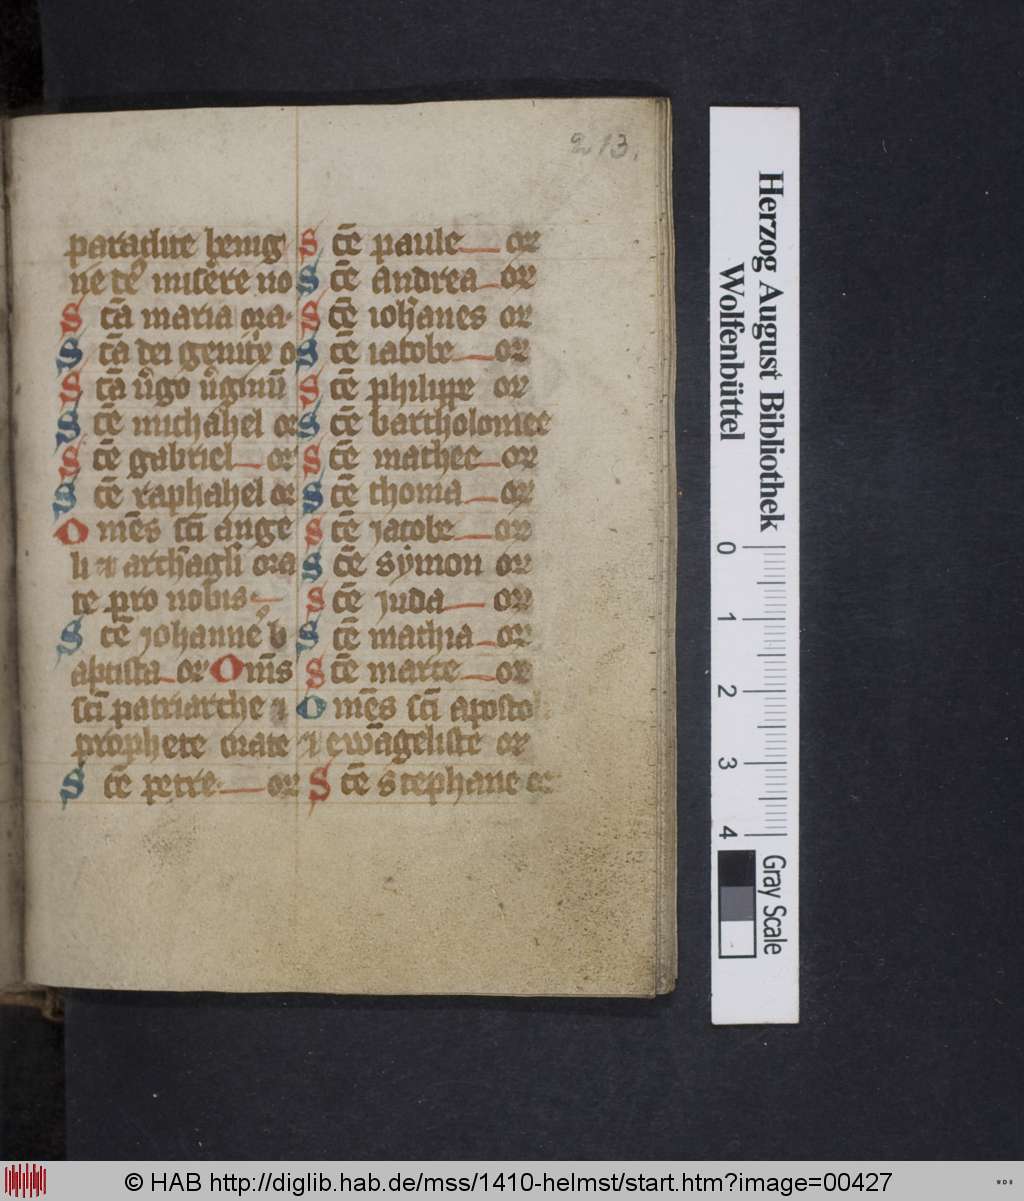 213.
paraclite benig
ne de᷒ misere no
S cā maria ora
S cā dei genit̾x o
S cā v̾go v̾ginū
S cē michahel or
S cē gabriel or
S cē raphahel or
O mēs scī ange
li et archāgli ora
te pro nobis
S cē johanne b
aptista or Om̄s
scī patriarche et
prophete orate
S cē petre or
S cē paule or
S cē andrea or
S cē ioh̄anes or
S cē iacobe or
S cē philippe or
S cē bartholomee
S cē mathee or
S cē thoma or
S cē jacobe or
S cē symon or
S cē juda or
S cē mathia or
S cē marce or
O mēs scī aposto
et ewāgeliste or
S cē stephane or
Herzog August Bibliothek
Wolfenbüttel
0 1 2 3 4
Gray Scale
© HAB http://diglib.hab.de/mss/1410-helmst/start.htm?image=00427